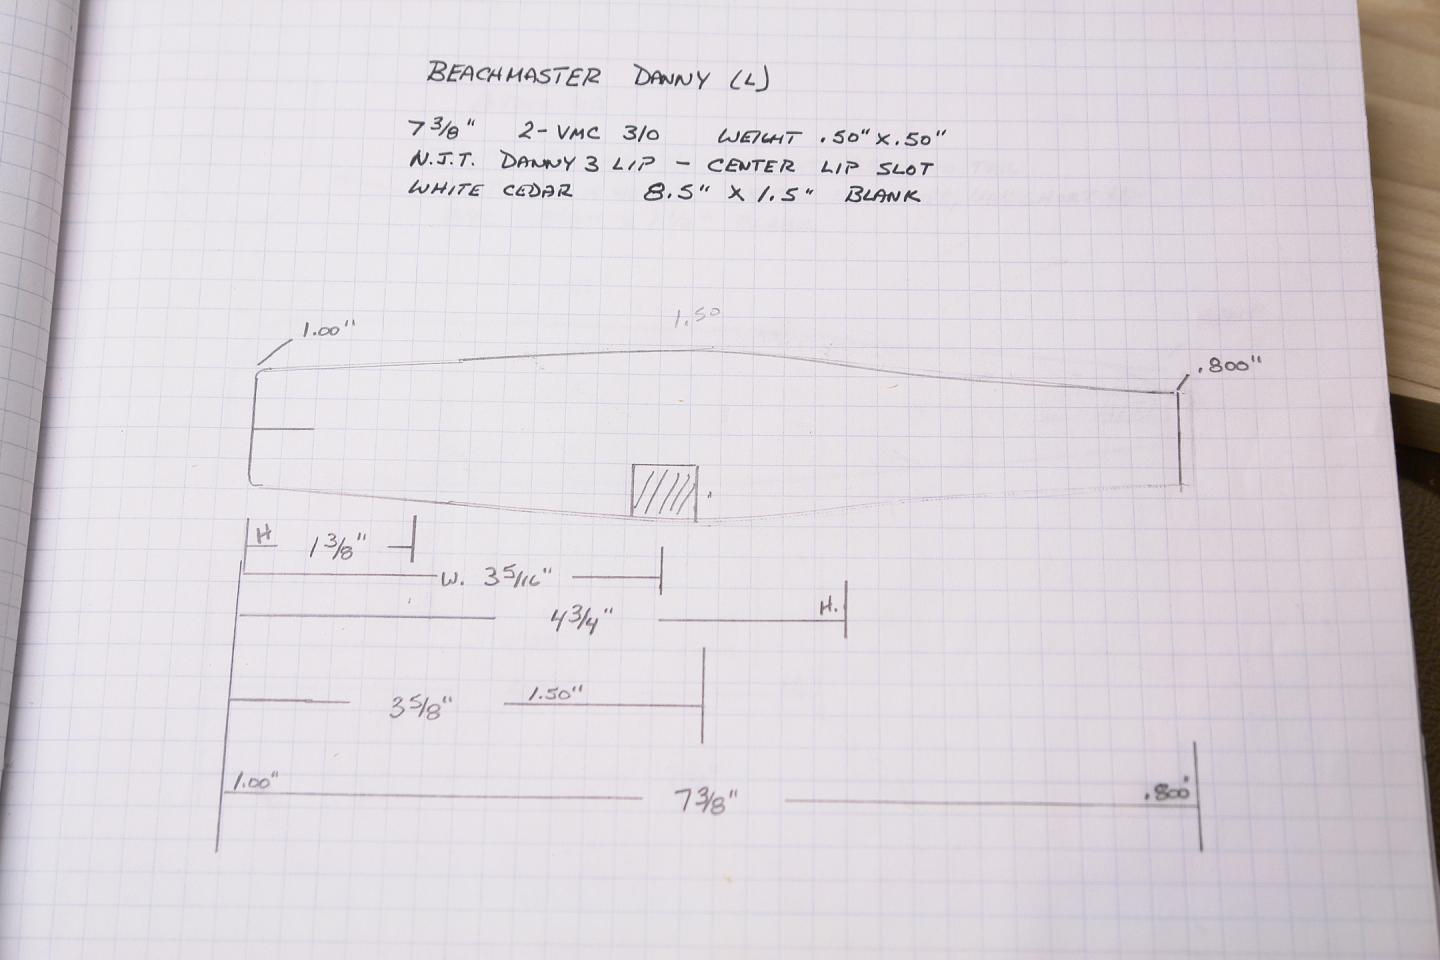 BEACHMASTER DANNY (L)
7 3/8" 2-VMC 3/0 WEIGHT .50" X .50"
N.J.T. DANNY 3 LIP - CENTER LIP SLOT
WHITE CEDAR 8.5" X 1.5" BLANK
1.50
1.00"
.800"
H 1 3/8"
W. 3 5/16"
4 3/4" H.
3 5/8" 1.50"
1.00" 7 3/8" .800"